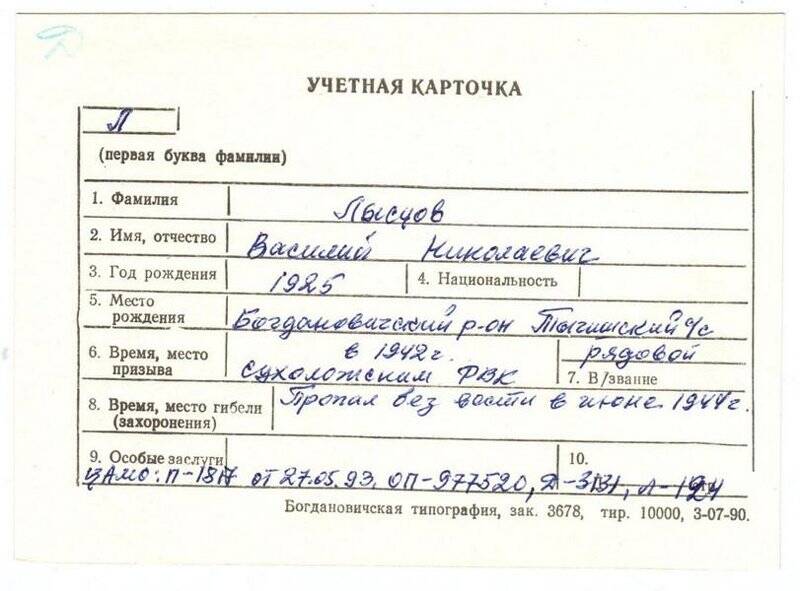 УЧЕТНАЯ КАРТОЧКА
Л
(первая буква фамилии)
1. Фамилия Лысцов
2. Имя, отчество Василий Николаевич
3. Год рождения 1925 4. Национальность
5. Место рождения Богдановичский р-он Тыгишский с/с
6. Время, место призыва в 1942г. Сухоложским РВК
рядовой
7. В/звание
8. Время, место гибели (захоронения) Пропал без вести в июне 1944г.
9. Особые заслуги 10.
ЦАМО: П-18 от 27.05.93. ОП-977520,
Богдановичская типография, зак. 3678, тир. 10000, 3-07-90.